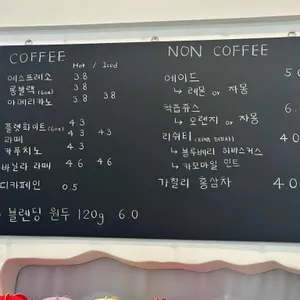 COFFEE
Hot / Iced
에스프레소 3.8
롱블랙 (6oz) 3.8
아메리카노 3.8 / 3.8
플랫화이트 (6oz) 4.3
라떼 4.3 4.3
카푸치노 4.3
바닐라 라떼 4.6 4.6
디카페인 0.5
블렌딩 원두 120g 6.0
NON COFFEE
에이드 5.0
↳ 레몬 or 자몽
착즙쥬스 6.
↳ 오렌지 or 자몽
리쉬티 4.0
↳ 블루베리 히비스커스
↳ 카모마일 민트
가질리 홍삼차 4.0